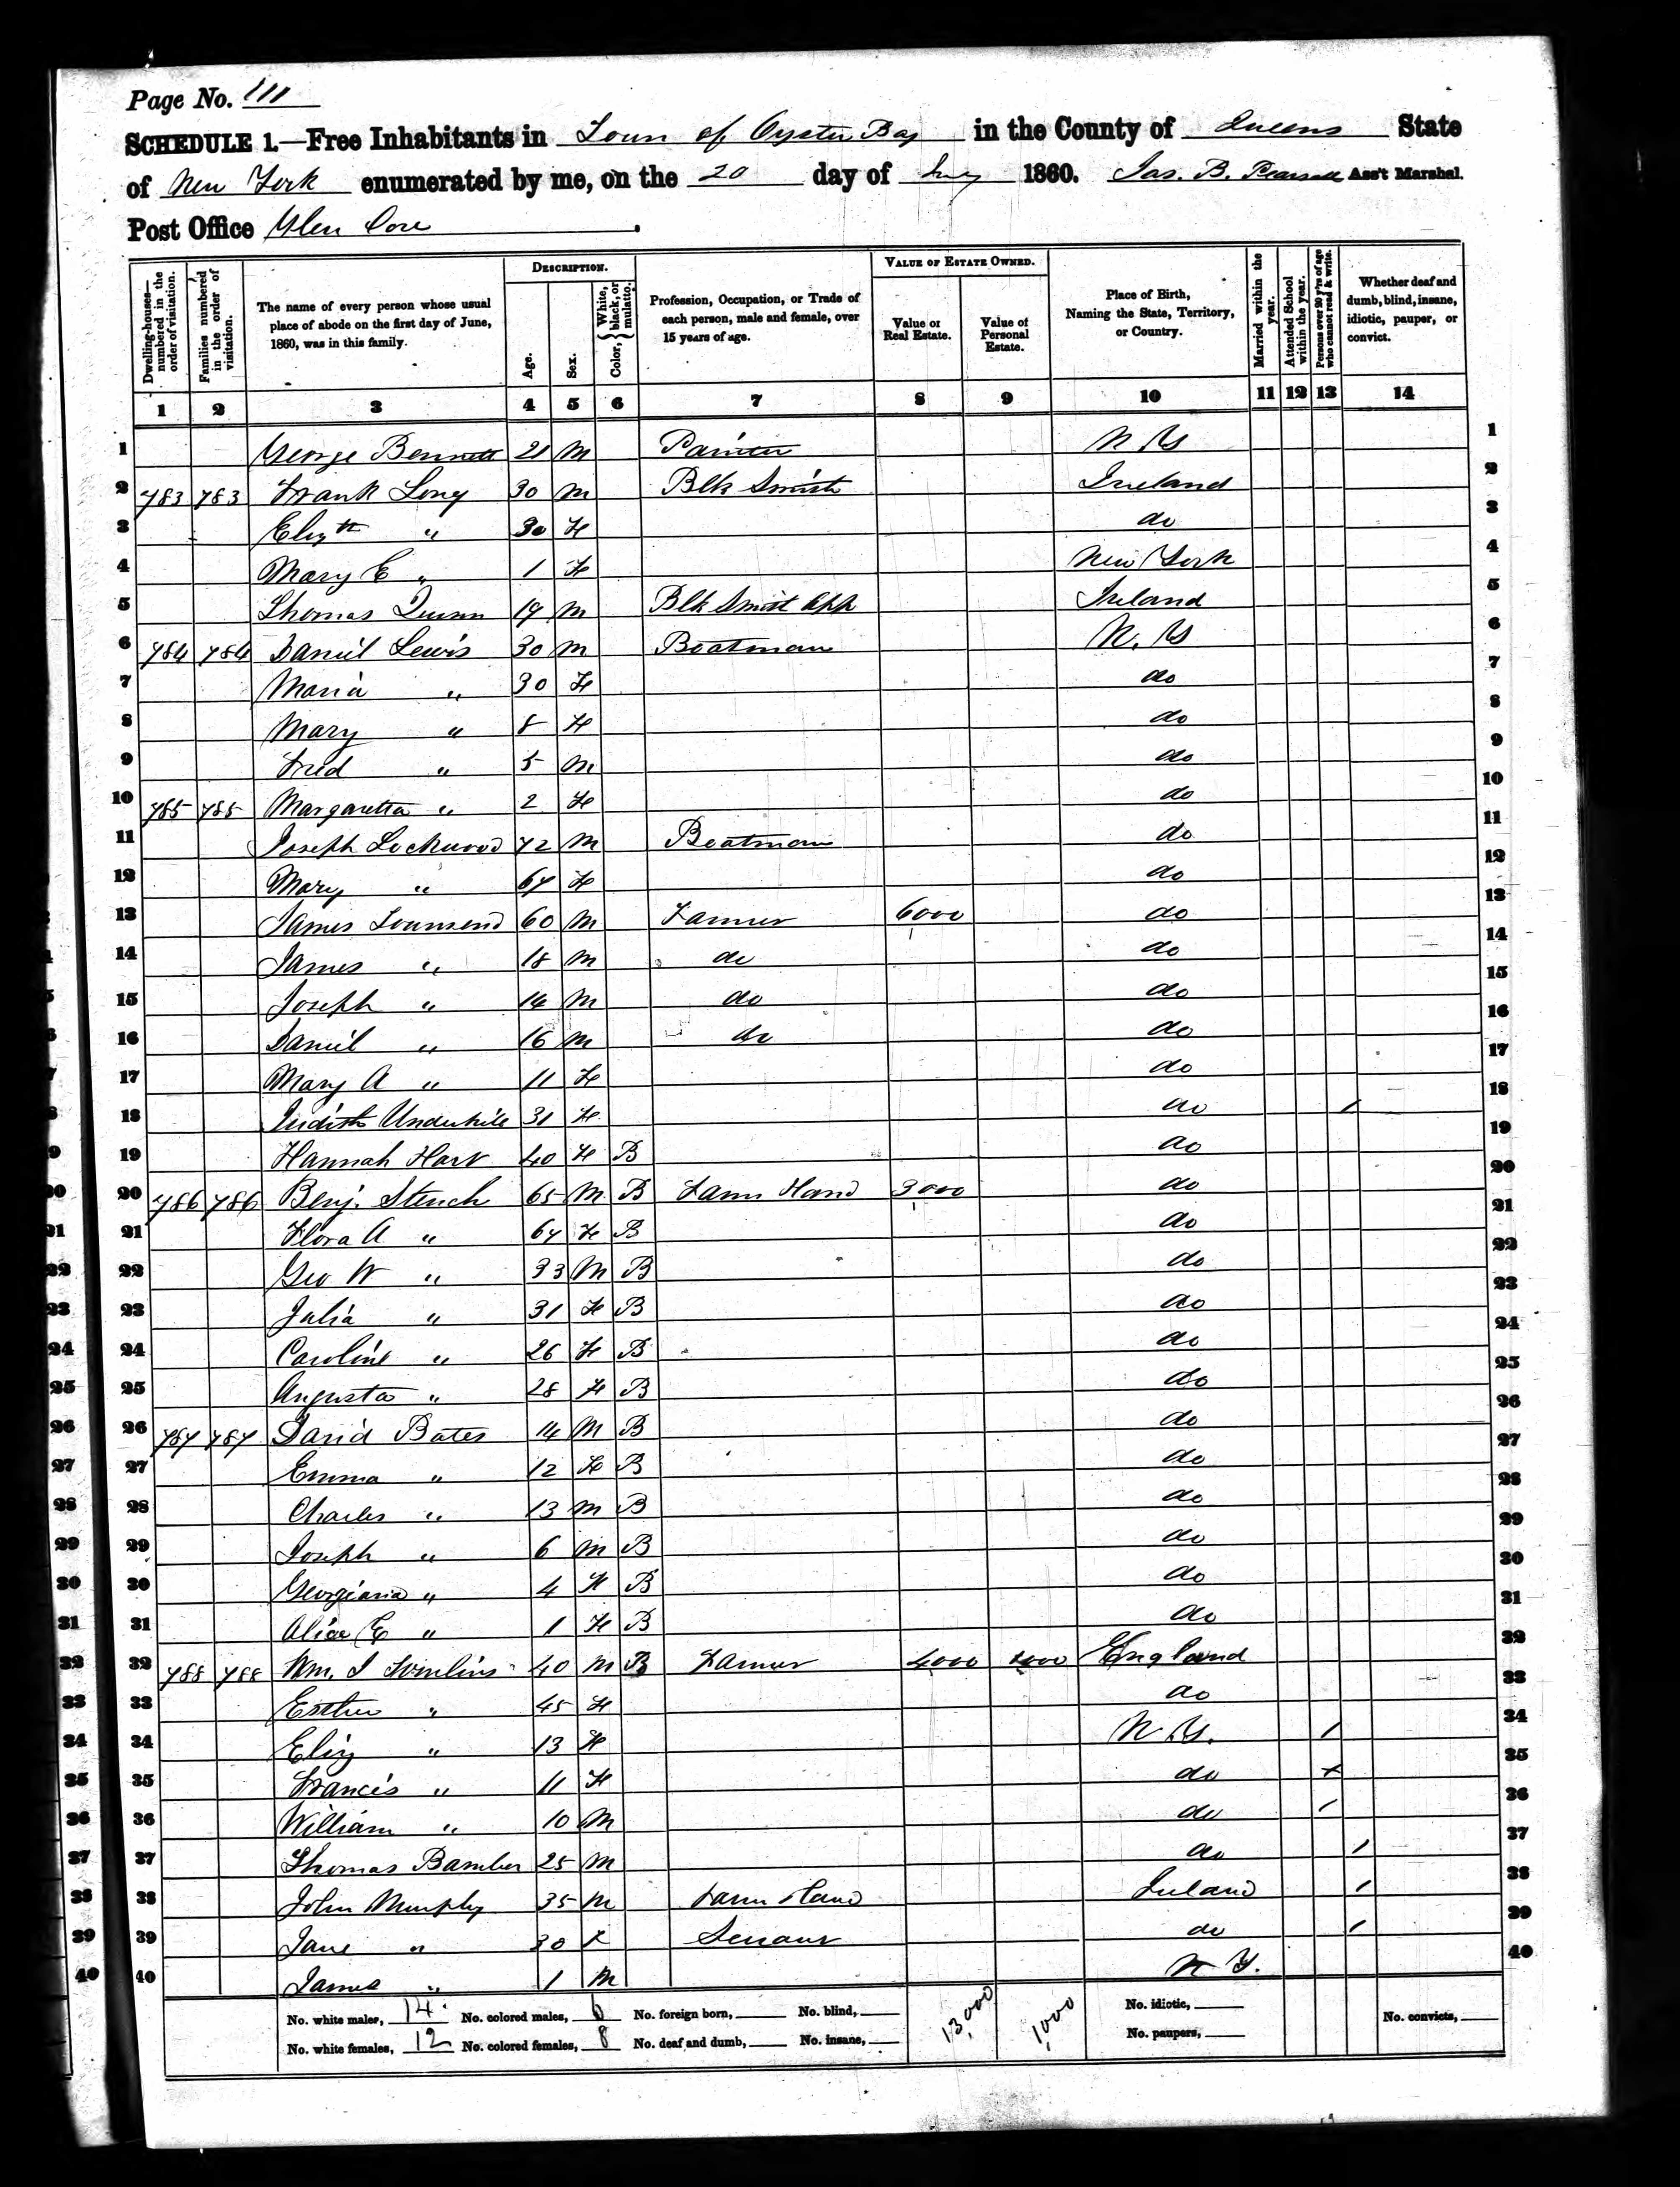 Page No. 111
SCHEDULE 1.—Free Inhabitants in Town of Oyster Bay in the County of Queens State
of New York enumerated by me, on the 20 day of July 1860. Jas. B. Pearsall Ass't Marshal.
Post Office Glen Cove.
Dwelling-houses—numbered in the order of visitation.
Families numbered in the order of visitation.
The name of every person whose usual place of abode on the first day of June, 1860, was in this family.
DESCRIPTION.
Age.
Sex.
Color, { White, black, or mulatto.
Profession, Occupation, or Trade of each person, male and female, over 15 years of age.
VALUE OF ESTATE OWNED.
Value of Real Estate.
Value of Personal Estate.
Place of Birth, Naming the State, Territory, or Country.
Married within the year.
Attended School within the year.
Persons over 20 y'rs of age who cannot read & write.
Whether deaf and dumb, blind, insane, idiotic, pauper, or convict.
1 2 3 4 5 6 7 8 9 10 11 12 13 14
1 George Bennett 21 M Painter N Y 1
2 783 783 Frank Long 30 M Blk Smith Ireland 2
3 Elizth " 30 F do 3
4 Mary E " 1 F New York 4
5 Thomas Quinn 19 M Blk Smith App Ireland 5
6 784 784 Daniel Lewis 30 M Boatman N. Y 6
7 Maria " 30 F do 7
8 Mary " 8 F do 8
9 Fred " 5 M do 9
10 785 785 Margaretta " 2 F do 10
11 Joseph Lockwood 72 M Boatman do 11
12 Mary " 67 F do 12
13 James Townsend 60 M Farmer 6000 do 13
14 James " 18 M do do 14
15 Joseph " 14 M do do 15
16 Daniel " 16 M do do 16
17 Mary A " 11 F do 17
18 Judith Underhill 31 F do / 18
19 Hannah Hart 40 F B do 19
20 786 786 Benj. 65 M B Farm Hand 3000 do 20
21 Flora A " 67 F B do 21
22 Geo W " 33 M B do 22
23 Julia " 31 F B do 23
24 Caroline " 26 F B do 24
25 Augusta " 28 F B do 25
26 787 787 David Bates 14 M B do 26
27 Emma " 12 F B do 27
28 Charles " 13 M B do 28
29 Joseph " 6 M B do 29
30 Georgiana " 4 F B do 30
31 Alice E " 1 F B do 31
32 788 788 Wm. J Tomlins 40 M B Farmer 4000 1000 England 32
33 Esther " 45 F do 33
34 Eliz " 13 F N.Y. / 34
35 Francis " 11 F do + 35
36 William " 10 M do / 36
37 Thomas Bamber 25 M do / 37
38 John Murphy 35 M Farm Hand Ireland / 38
39 Jane " 30 F Servant do / 39
40 James " 1 M N Y. 40
No. white males, 14 No. colored males, 6 No. foreign born, No. blind, 13,000 1,000 No. idiotic, No. convicts,
No. white females, 12 No. colored females, 8 No. deaf and dumb, No. insane, No. paupers,